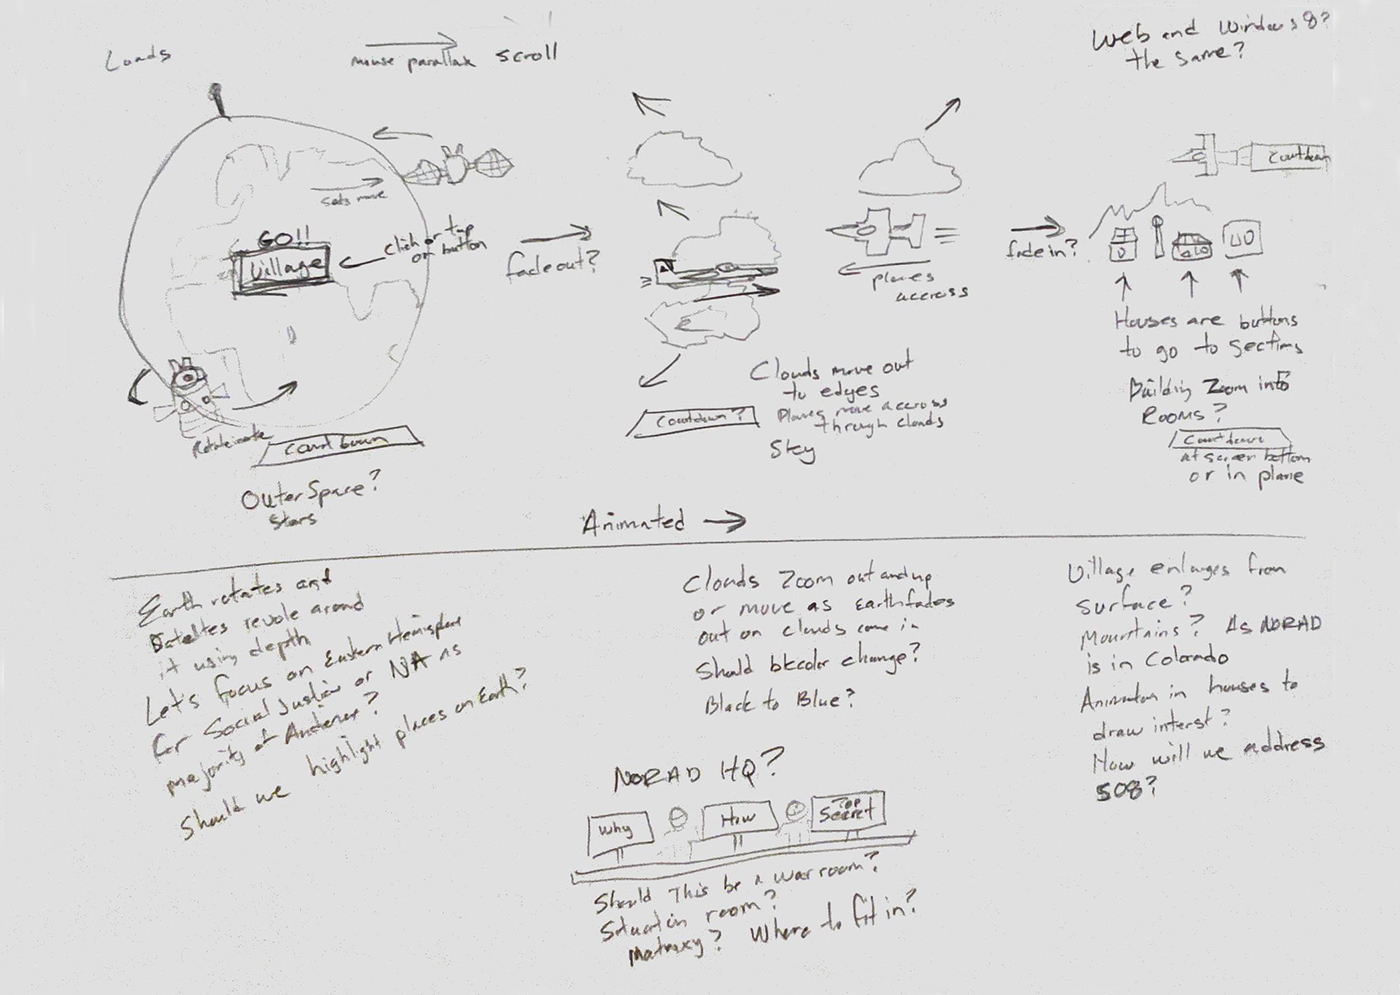 Loads
mouse parallax scroll
Web and Windows 8?
the same?
sats move
GO!!
Village
click or tap
on button
Rotate
Count Down
Outer Space?
Stars
fade out?
planes
accross
Clouds move out
to edges
Planes move accross
through clouds
Sky
Countdown?
fade in?
Countdown
Houses are buttons
to go to Sections
Building Zoom into
Rooms?
Countdown
at screen bottom
or in plane
Animated
Earth rotates and
Satelites revole around
it using depth
Let's focus on Eastern Hemisphere
for Social Justice or NA as
majority of Audience?
Should we highlight places on Earth?
Clouds Zoom out and up
or move as Earth fades
out on clouds come in
Should bkcolor change?
Black to Blue?
Village enlarges from
surface?
Mountains? As NORAD
is in Colorado
Animation in houses to
draw interst?
How will we address
508?
NORAD HQ?
Why
How
Top
Secret
Should This be a war room?
Situation room?
Where to fit in?